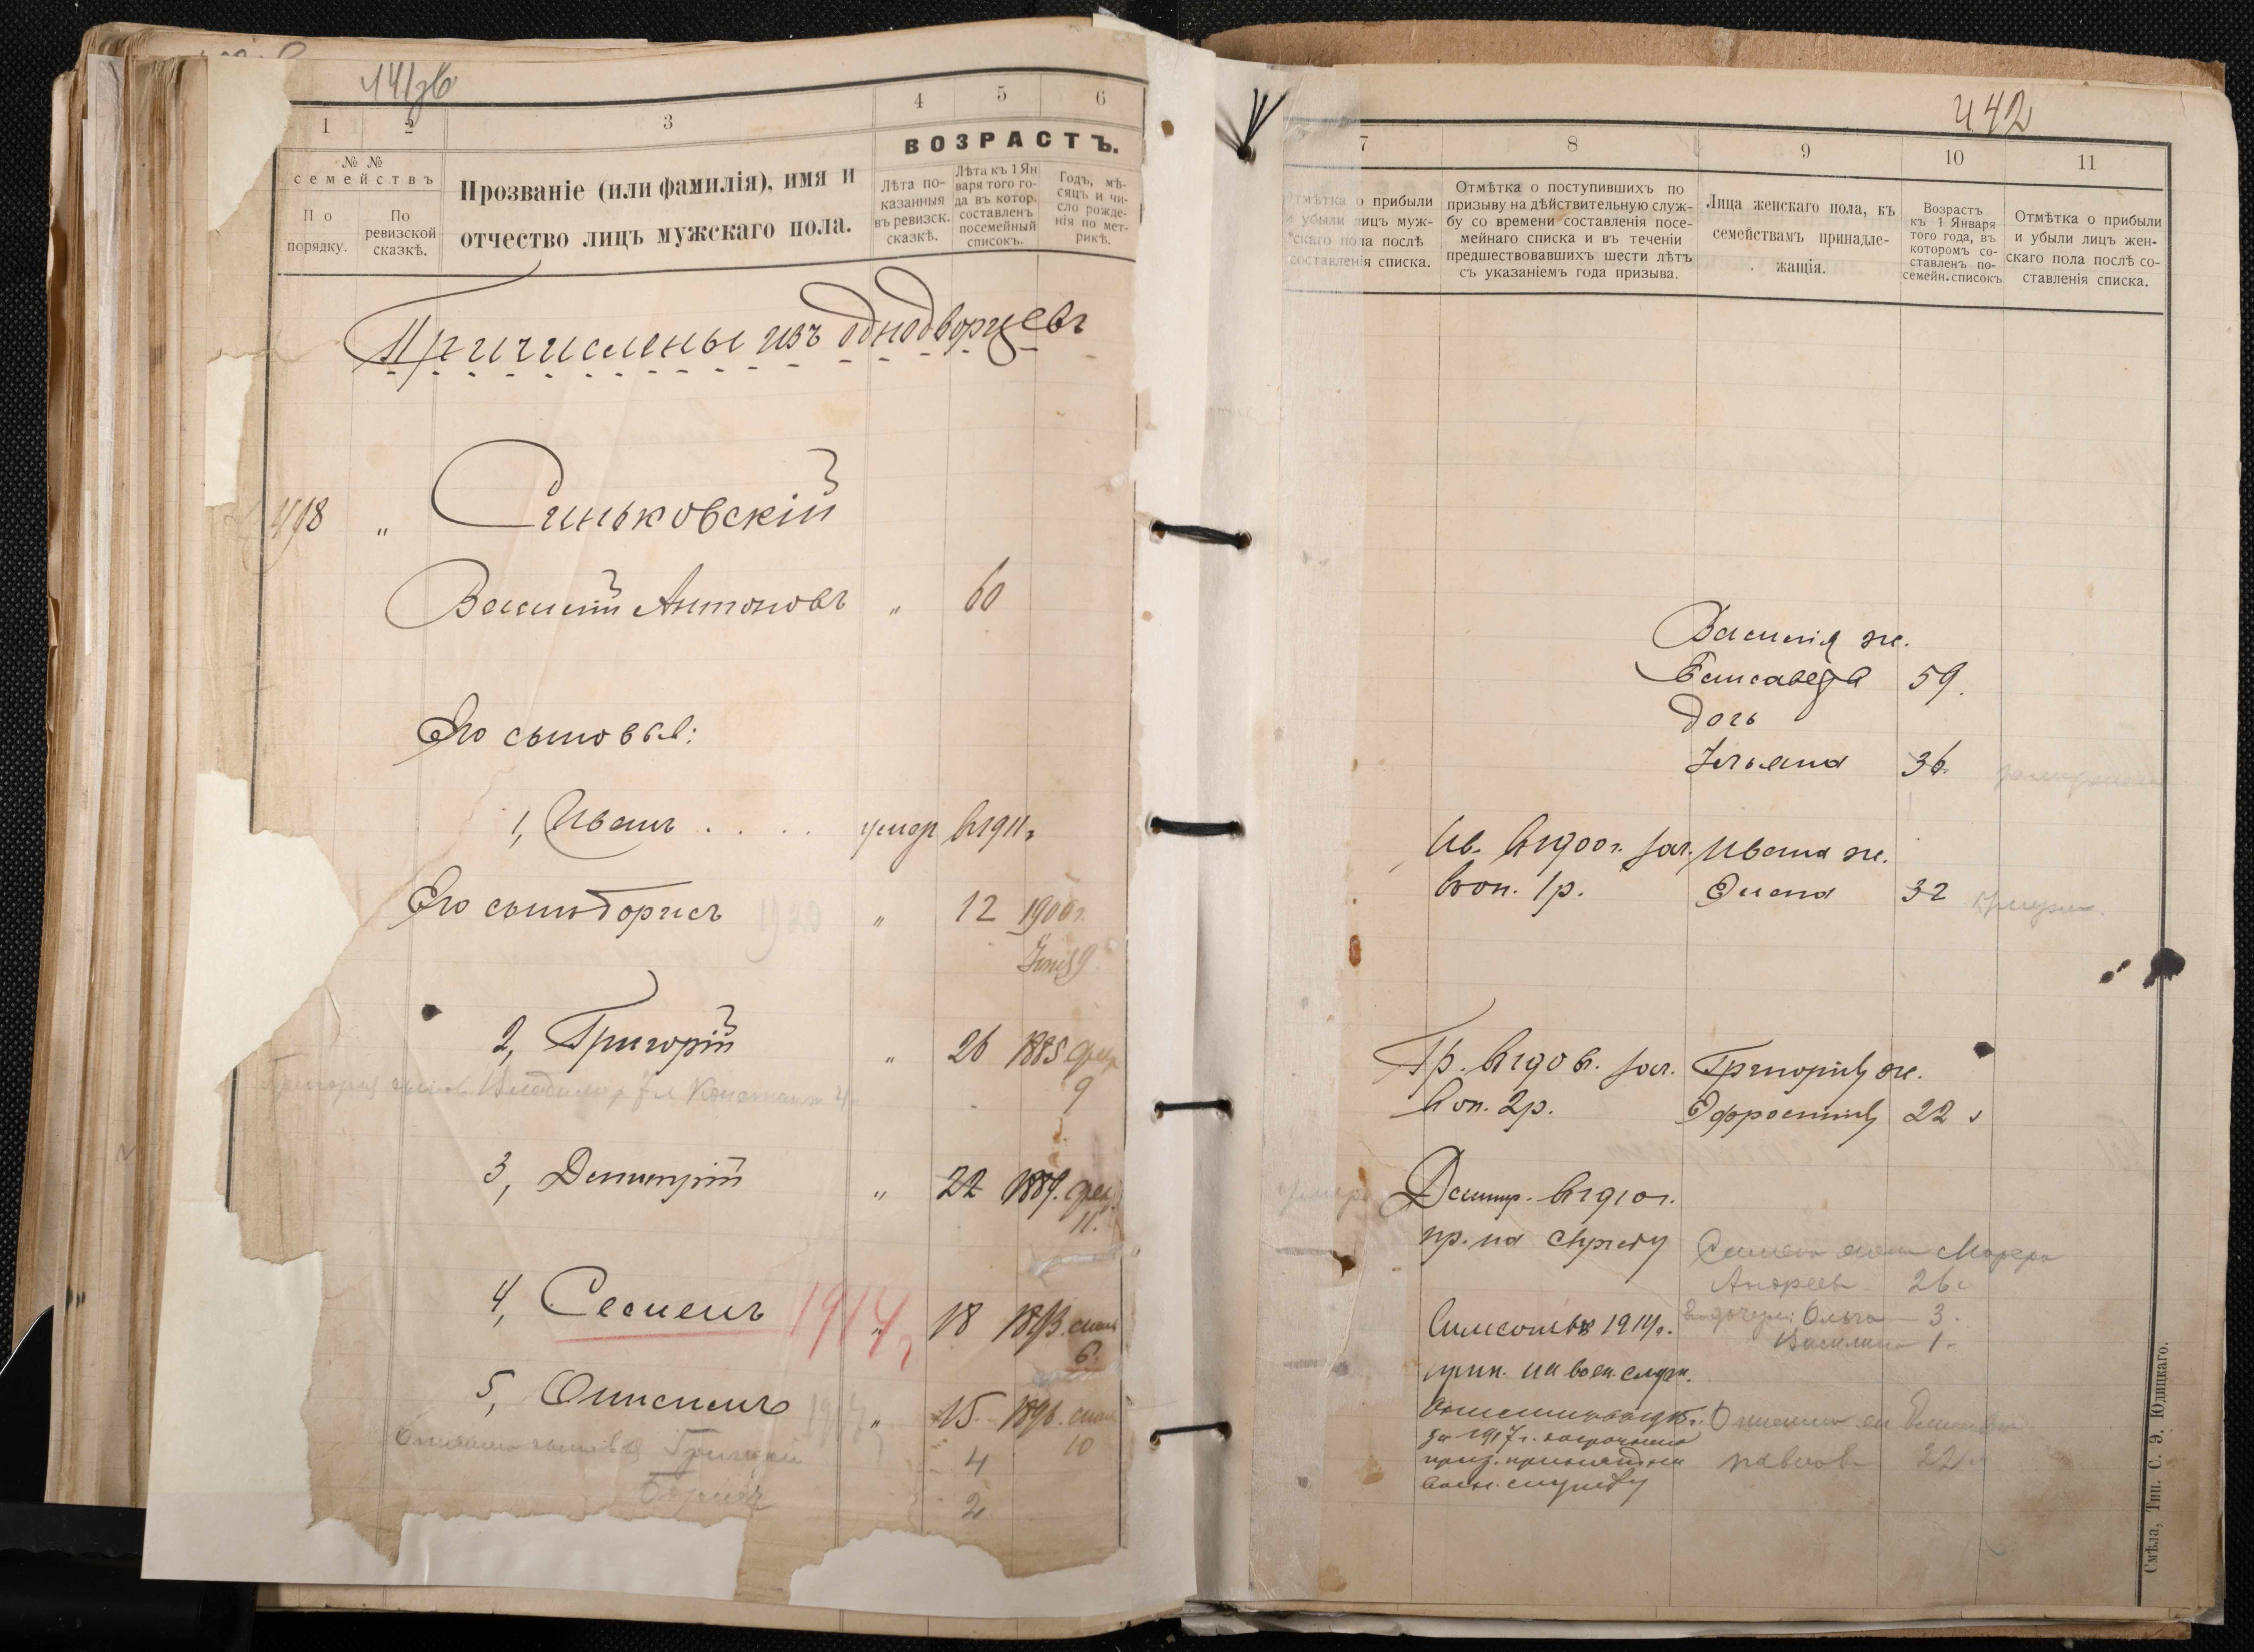 441об
1
2
3
4
5
6
№ №
семействъ
По порядку.
По ревизской сказкѣ.
Прозваніе (или фамилія), имя и
отчество лицъ мужскаго пола.
ВОЗРАСТЪ.
Лѣта по-
казанныя
въ ревизск.
сказкѣ.
Лѣта къ 1 Ян
варя того го-
да въ котор.
составленъ
посемейный
списокъ.
Годъ, мѣ-
сяцъ и чи-
сло рожде-
нія по мет-
рикѣ.
Причислены изъ однодворцевъ
498 „ Синьковскій
Василій Антоновъ „ 60
Его сыновья:
1, Иванъ . . . . умер в 1911г
Его сынъ Борисъ 1920 „ 12 1900г.
9
2, Григорій „ 26 1885 фев
9
Григорія сынов. Владимир 7л Константин 4
3, Димитрій „ 22 1889. фев
11.
4, Семенъ 1914 „ 18 1893.
6.
5, Онисимъ „ 15 1896.
10
Онисима сыновья Григорій 4
Борисъ 2
442
7
8
9
10
11
Отмѣтка о прибыли
и убыли лицъ муж-
скаго пола послѣ
составленія списка.
Отмѣтка о поступившихъ по
призыву на дѣйствительную служ-
бу со времени составленія посе-
мейнаго списка и въ теченіи
предшествовавшихъ шести лѣтъ
съ указаніемъ года призыва.
Лица женскаго пола, къ
семействамъ принадле-
жащія.
Возрастъ
къ 1 Января
того года, въ
которомъ со-
ставленъ по-
семейн. списокъ
Отмѣтка о прибыли
и убыли лицъ жен-
скаго пола послѣ со-
ставленія списка.
Василія ж.
Елисавета 59.
дочь
Ульяна 36.
Ив. в 1900г. зач. Ивана ж.
в оп. 1р. Елена 32 умерла.
Гр. зач. Григорія ж.
в оп. 2р. Эфросинія 22
умер Димитр. в 1910г.
пр. на службу
Семена жена Марфа
Андреев 26
дочери: Ольга 3.
Василина 1.
Симеонъ в 1914г.
прин. на воен. служ.
за 1917г.
воен. службу
Онисима
павлов 22
Смѣла, Тип. С. Э. Юдицкаго.